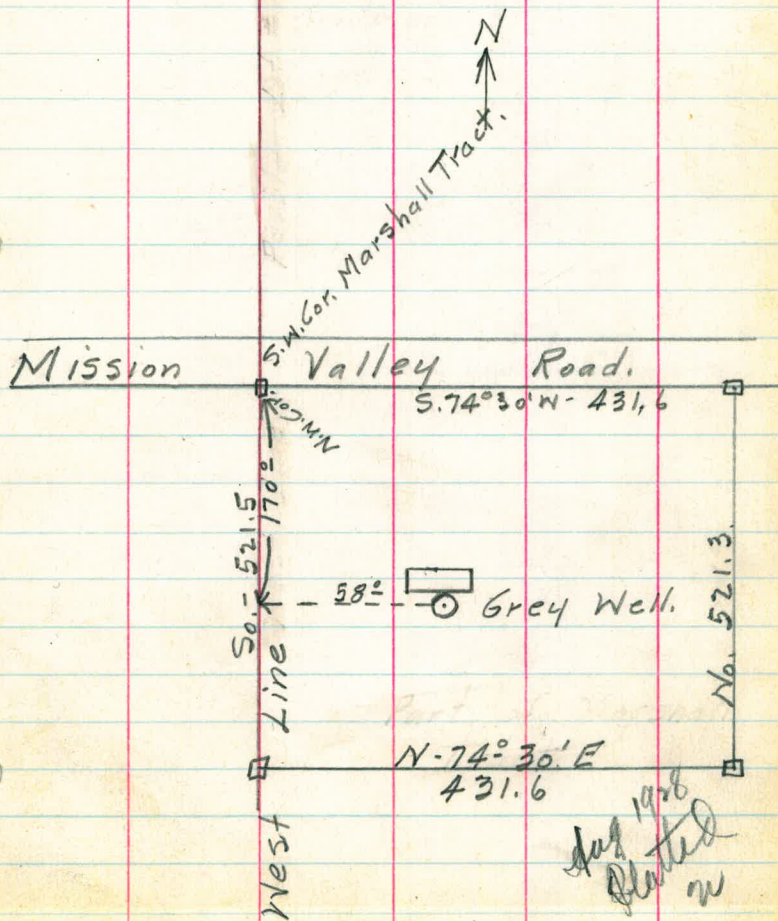 N
S.W. Cor. Marshall Tract.
Mission Valley Road.
S. 74° 30' W - 431,6
N.W. Cor.
So. - 521.5
170°
58°
Grey Well.
No. 521.3.
West Line
N - 74° 30' E
431.6
Aug 1928
Platted